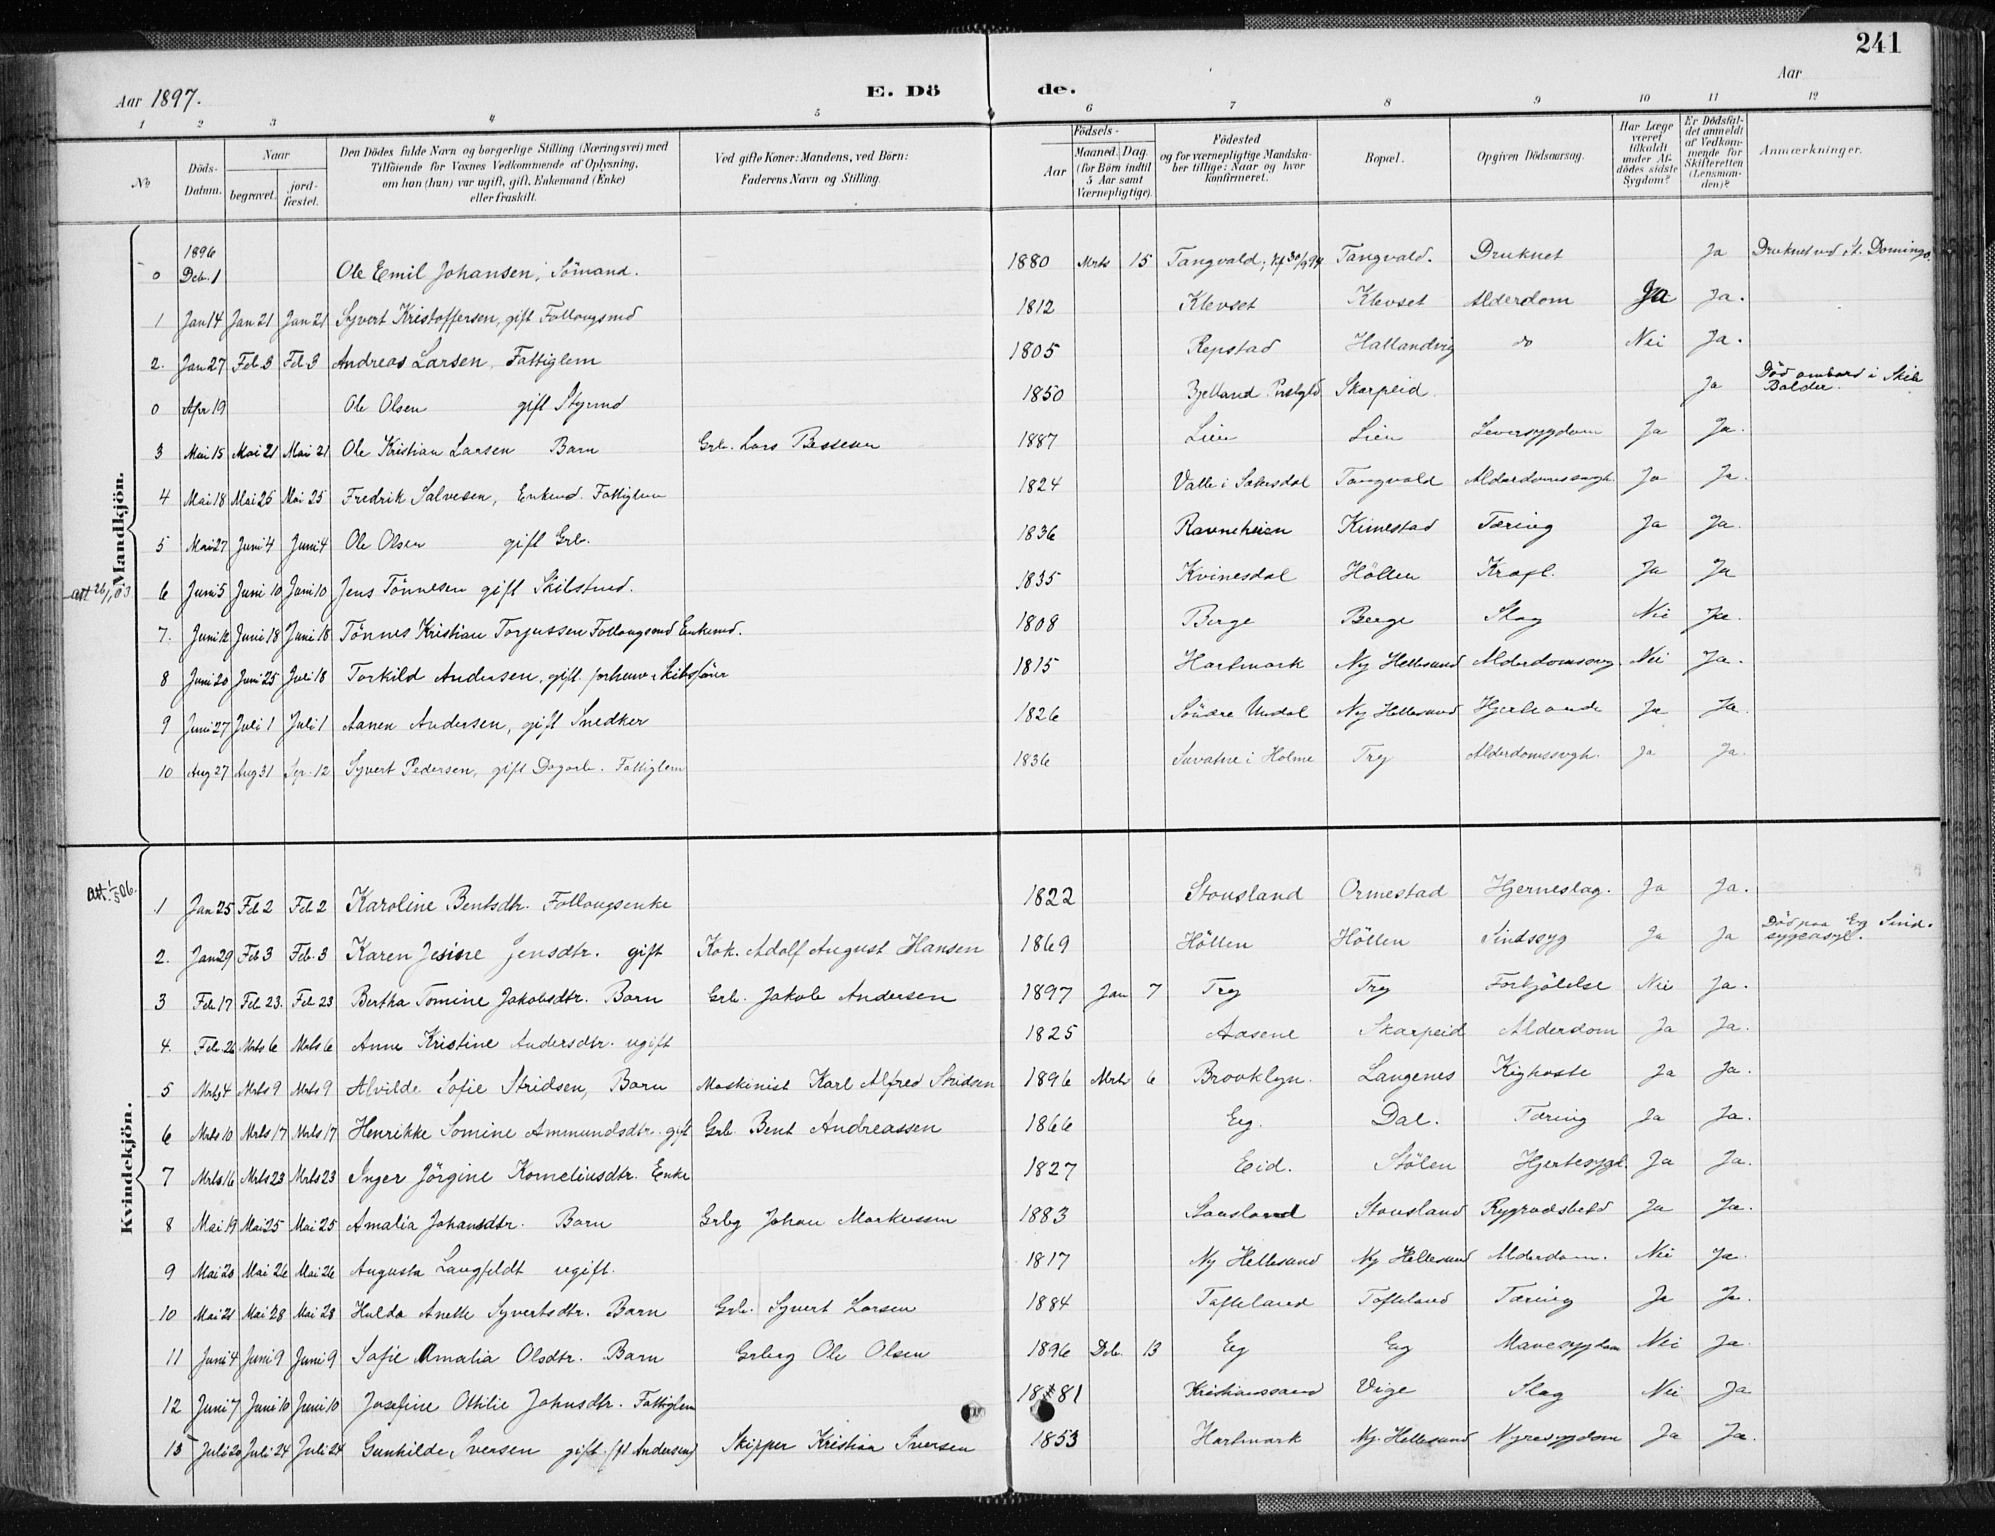 241
Aar 1897. E. Dö de. Aar
1 2 3 4 5 6 7 8 9 10 11 12
No Döds-Datum. Naar begravet. jord-fæstet. Den Dödes fulde Navn og borgerlige Stilling (Næringsvei) med Tilföiende for Voxnes Vedkommende af Oplysning, om han (hun) var ugift, gift, Enkemand (Enke) eller fraskilt. Ved gifte Koner: Mandens, ved Börn: Faderens Navn og Stilling. Födsels- Aar Maaned. Dag (for Börn indtil 5 Aar samt Værnepligtige). Födested og for værnepligtige Mandskaber tillige: Naar og hvor konfirmeret. Bopæl. Opgiven Dödsaarsag. Har Læge været tilkaldt under Afdödes sidste Sygdom? Er Dödsfaldet anmeldt af Vedkommende for Skifteretten (Lensmanden)? Anmærkninger.
Mandkjön.
0 1896 Deb. 1 Ole Emil Johansen, Sömand. 1880 Mrts 15 Tangvald, Kf 30/9 94 Tangvald. Druknet Ja Druknet ved St. Domingo
1 Jan 14 Jan 21 Jan 21 Syvert Kristoffersen, gift Follougsmd 1812 Klevset Klevset Alderdom Ja Ja.
2. Jan 27 Feb 3 Feb 3 Andreas Larsen, Fattiglem 1805 Repstad Hallandvig do Nei Ja.
0 Apr 19 Ole Olsen gift Styrmd 1850 Bjelland Prstgld Skarpeid. Ja Död ombord i Skib Balder.
3 Mai 15 Mai 21 Mai 21 Ole Kristian Larsen Barn Grb. Lars Bessesen 1887 Lien Lien Leversygdom Ja Ja.
4 Mai 18 Mai 25 Mai 25 Fredrik Salvesen, Enkemd. Fattiglem 1824 Valle i Sætersdal Tangvald Alderdomssvagh. Ja Ja.
5 Mai 27 Juni 4 Juni 4 Ole Olsen gift Grb. 1836 Ravneheien Kimestad Tæring Ja Ja.
att 26/1 03 6 Juni 5 Juni 10 Juni 10 Jens Tönnesen gift Skibstmd. 1835 Kvinesdal Hölten Kræft. Ja Ja
7. Juni 12 Juni 18 Juni 18 Tönnes Kristian Torjussen Follougsmd Enkemd. 1808 Berge Berge Slag Nei Ja.
8 Juni 20 Juni 25 Juli 18 Torkild Andersen, gift forhenv. Skibsförer 1815 Hartmark Ny Hellesund Alderdomssvag Nei Ja.
9 Juni 27 Juli 1 Juli 1 Aanen Andersen, gift Snedker 1826 Söndre Undal Ny Hellesund Ja Ja.
10 Aug 27 Aug 31 Sep. 12 Syvert Pedersen, gift Dagarb. Fattiglem 1836 i Holme Try Alderdomssvagh. Ja Ja.
Kvindekjön.
att. 1/5 06. 1 Jan 25 Feb 2 Feb 2 Karoline Bentsdtr. Follougsenke 1822 Stousland Ormestad Hjerneslag. Ja Ja.
2. Jan 29 Feb 3 Feb. 3 Karen Jesine Jensdtr. gift Kok. Adolf August Hansen 1869 Hölten Hölten Sindssyg Ja Ja Död paa Eg Sindsygeasyl.
3 Feb 17 Feb 23. Feb 23 Bertha Tomine Jakobsdtr. Barn Grb. Jakob Andersen 1897 Jan 7 Try Try Forkjölelse Nei Ja.
4. Feb. 26 Mrts 6 Mrts 6 Anne Kristine Andersdtr. ugift 1825 Aasene Skarpeid Alderdom Ja Ja.
5 Mrts 4 Mrts 9 Mrts 9 Alvilde Sofie Stridsen, Barn Maskinist Karl Alfred Stridsen 1896 Mrts 6 Brooklyn. Langenes Kighoste Ja Ja.
6 Mrts 10 Mrts 17 Mrts 17 Henrikke Somine Ammundsdtr. gift Grb. Bent Andreassen 1866 Eg. Dal. Tæring Ja Ja.
7 Mrts 16 Mrts 23 Mrts 23 Inger Jörgine Korneliusdtr. Enke 1827 Eid. Stölen Hjertesygd. Ja Ja.
8 Mai 19 Mai 25 Mai 25 Amalia Johansdtr. Barn Grbg Johan Markussen 1883 Stousland Stousland Ja Ja.
9 Mai 20 Mai 26 Mai 26 Augusta Langfeldt ugift. 1817 Ny Hellesund Ny Hellesund Alderdom. Nei Ja.
10 Mai 21 Mai 28 Mai 28 Hulda Anette Syvertsdtr. Barn Grb. Syvert Larsen 1884 Tofteland Tofteland Tæring Ja Ja.
11 Juni 4 Juni 9 Juni 9 Sofie Amalia Olsdtr. Barn Grberg Ole Olsen 1896 Deb. 13 Eg Eg Mavesygdom Nei Ja.
12 Juni 7 Juni 10 Juni 10 Josefine Otilie Johnsdtr. Fattiglem 1881 Kristianssand Vige Slag Nei Ja
13 Juli 20 Juli 24 Juli 24 Gunhilde Iversen gift (f. Andersen) Skipper Kristian Iversen 1853 Hartmark Ny. Hellesund Nyresygdom Ja Ja.